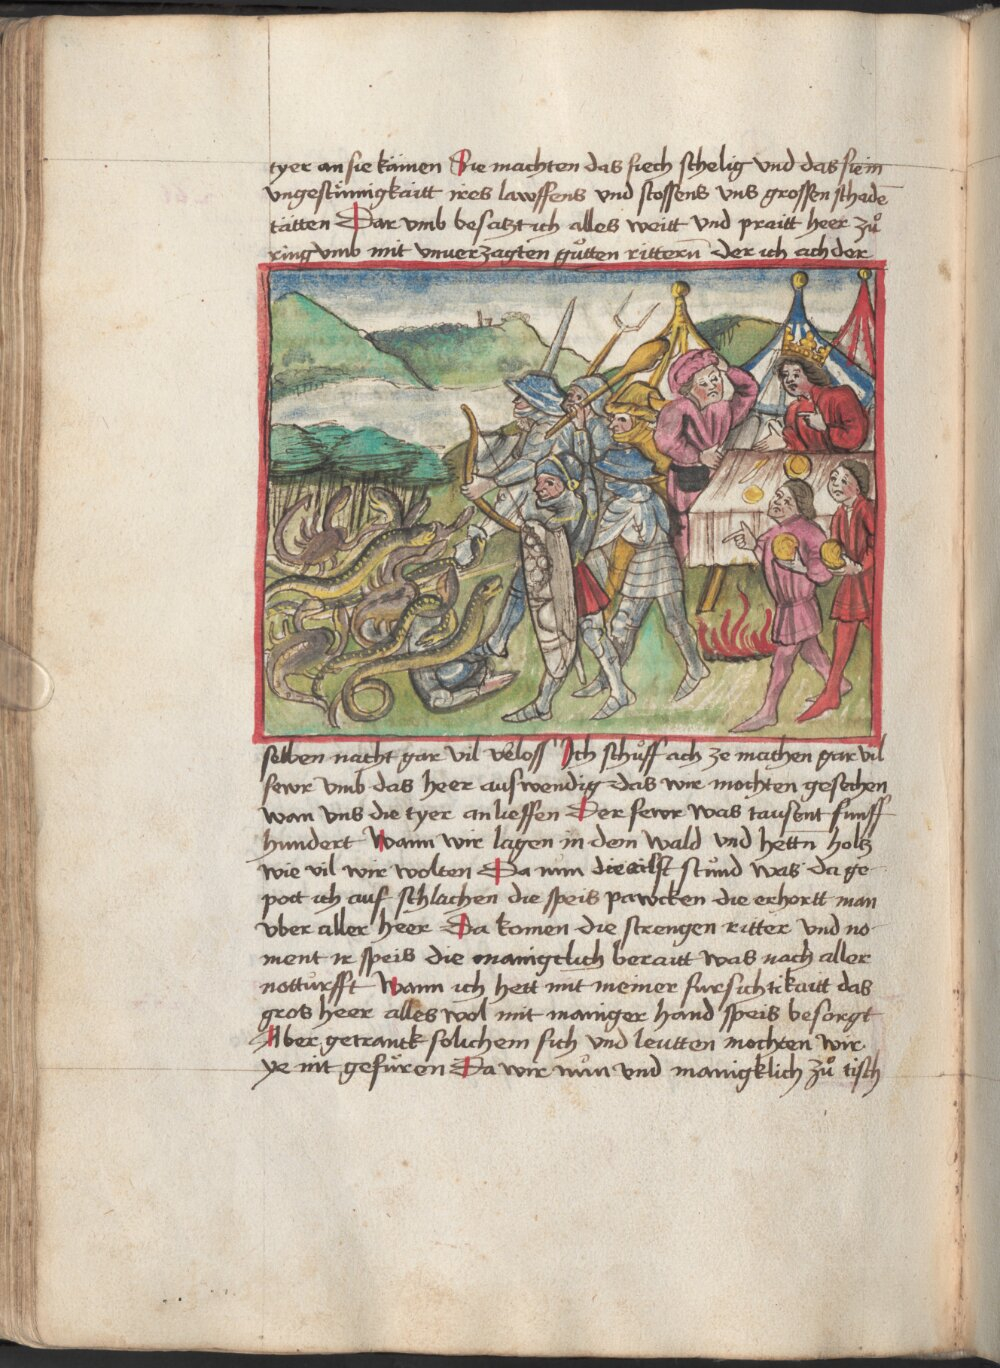 tyer an sie kämen Sie machten das fiech schelig vnd das sie in
vngestümigkaitt ires lawffens vnd stossens vns grossen schadē
tätten Dar vmb besatzt ich alles weitt vnd praitt heer zů
ring vmb mit vnuerzagten gůtten rittern̄ der ich ach der
selben nacht gar vil v̈loss Ich schůff ach ze machen gar vil
fewr vmb das heer auswendig das wir mochten gesechen
wan vns die tyer an lieffen Der fewr was tausent funff
hundert Wann wir lagen in dem wald vnd hettn̄ holtz
wie vil wir wolten Da nun die ailft stund was da ge
pott ich auf schlachen die speis pawcken die erhortt man
vber aller heer Da komen die strengen ritter vnd no
ment ir speis die manigclich beraitt was nach aller
notturfft Wann ich hett mit meiner fursichtikaitt das
gros heer alles wol mit mainger hand speis besorgt
Aber getranck solichem fich vnd leutten mochten wir
ye nit gefüren Da wir nun vnd manigklich zů tisch